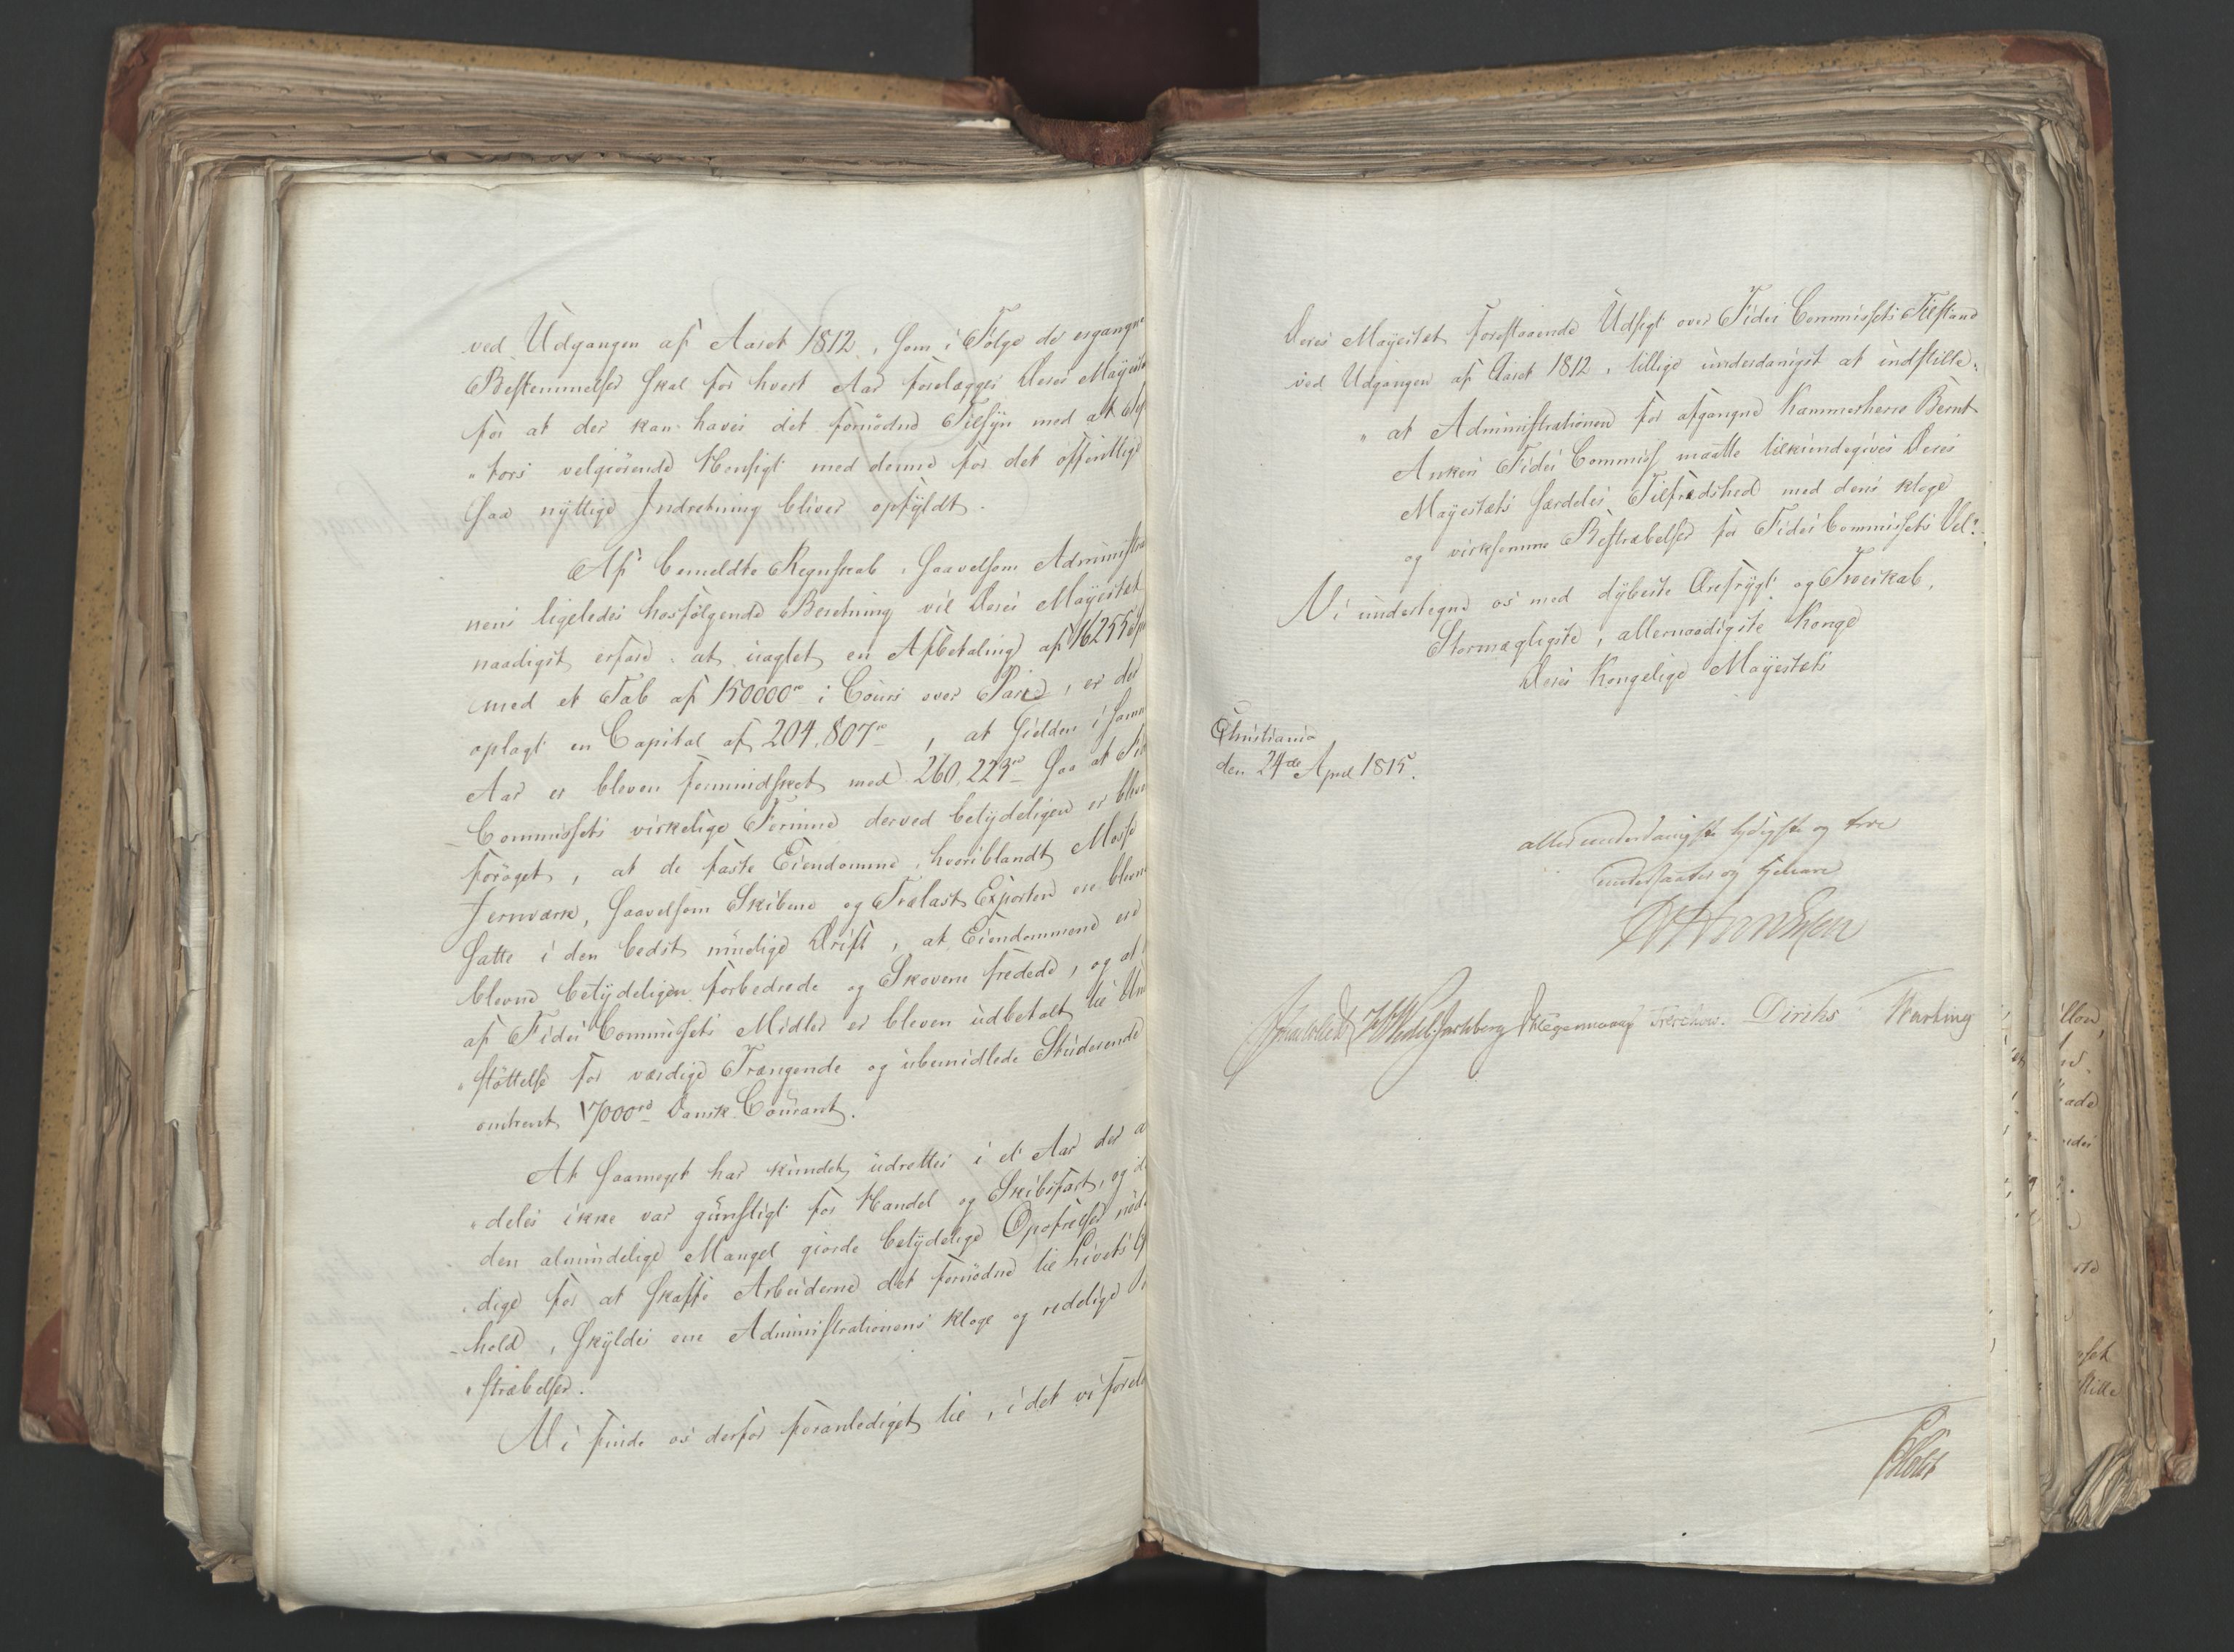 ved Udgangen af Aaret 1812, som i Følge de ergangne
Bestemmelser skal for hvert Aar forelægges Deres Majestæt
for at der kan haves det fornødne Tilsyn med at
"tors velgiørende Hensigt med denne for det offentlige
saa nyttige Indretning bliver opfyldt.
Af bemeldte Regnskab, saavelsom Administra
nens ligeledes hosfølgende Beretning vil Deres Majestæt
naadigst erfare, at uagtet en Afbetaling af 16255
med et Tab af 150000 rd i Cours over Pari, er der
oplagt en Capital af 204,807 rd, at Gielden i samme
Aar er bleven formindsket med 260,223 rd saa at Fidei
Commissets virkelige Formue derved betydeligen er bleven
forøget, at de faste Eiendomme, hvoriblandt Moss
Jernværk, saavelsom Skibene og Trælast Exporten ere blevne
satte i den bedst muelige Drift, at Eiendommene ere
blevne betydeligen forbedrede og Skovene fredede, og at
af Fidei Commissets Midler er bleven udbetalt til Un
"støttelse for værdige Trængende og ubemidlede Studerende
omtrent 17000 rd Dansk Courant.
At saameget har kundet udrettes i et Aar der a
"deles ikke var gunstigt for Handel og Skibsfart, og i
den almindelige Mangel giorde betydelige Opofrelser nød
"dige for at skaffe Arbeiderne det fornødne til Livets
-hold, skyldes ene Administrationens kloge og redelige
"stræbelser.
Vi finde os derfor foranlediget til, i det vi forel
Deres Majestæt forestaaende Udsigt over Fidei Commissets Tilstand
ved Udgangen af Aaret 1812, tillige underdanigst at indstille:
" at Administrationen for afgangne Kammerherre Bernt
Ankers Fidei Commiss maatte tilkiendegives Deres
Majestæts særdeles Tilfredshed med dens kloge
og virksomme Bestræbelser for Fidei Commissets Vel."
Vi undertegne os med dybeste Ærefrygt og Troeskab,
Stormægtigste, allernaadigste Konge
Deres Kongelige Majestæts
Christiania
den 24de April 1815.
allerunderdanigste lydigste og troe
undersaatter og tjenere
Sommerhielm Wedel Jarlsberg Hegermann Treschow. Diriks
Holst